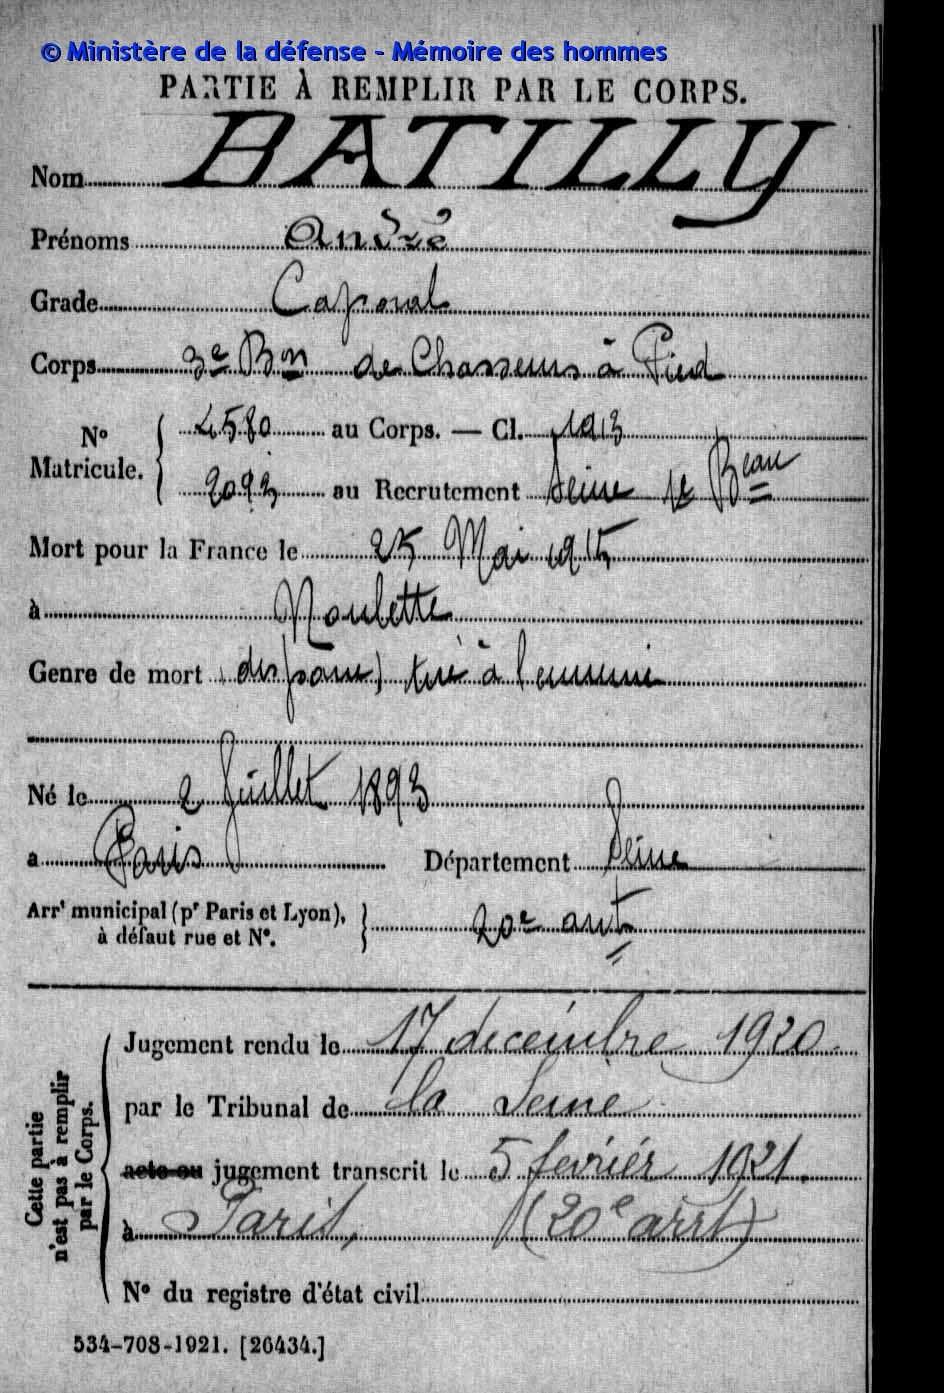 © Ministère de la défense - Mémoire des hommes
PARTIE À REMPLIR PAR LE CORPS.
Nom BATILLY
Prénoms André
Grade Caporal
Corps 3e Bon de Chasseurs à Pied
No Matricule. 4580 au Corps. — Cl. 1913
2093 au Recrutement Seine 1r Beau
Mort pour la France le 25 Mai 1915
à Noulette
Genre de mort (disparu) tué à l'ennemi
Né le 2 Juillet 1893
a Paris Département Seine
Arrt municipal (pr Paris et Lyon), à défaut rue et No. 20e arrt
Cette partie n'est pas à remplir par le Corps.
Jugement rendu le 17 décembre 1920.
par le Tribunal de la Seine
acte ou jugement transcrit le 5 février 1921.
à Paris, (20e arrt)
No du registre d'état civil
534-708-1921. [26434.]